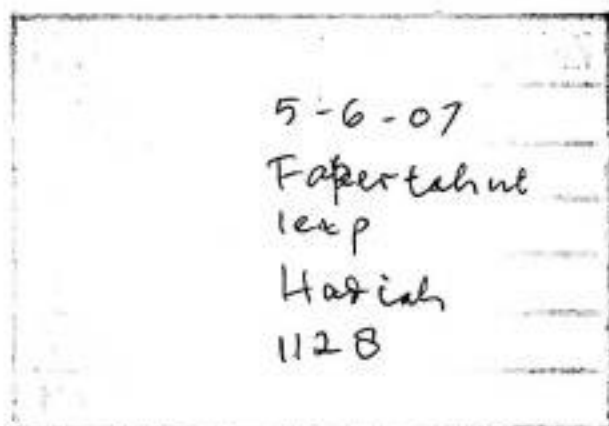 5-6-07
Fapertahut
1 exp
Hadiah
1128